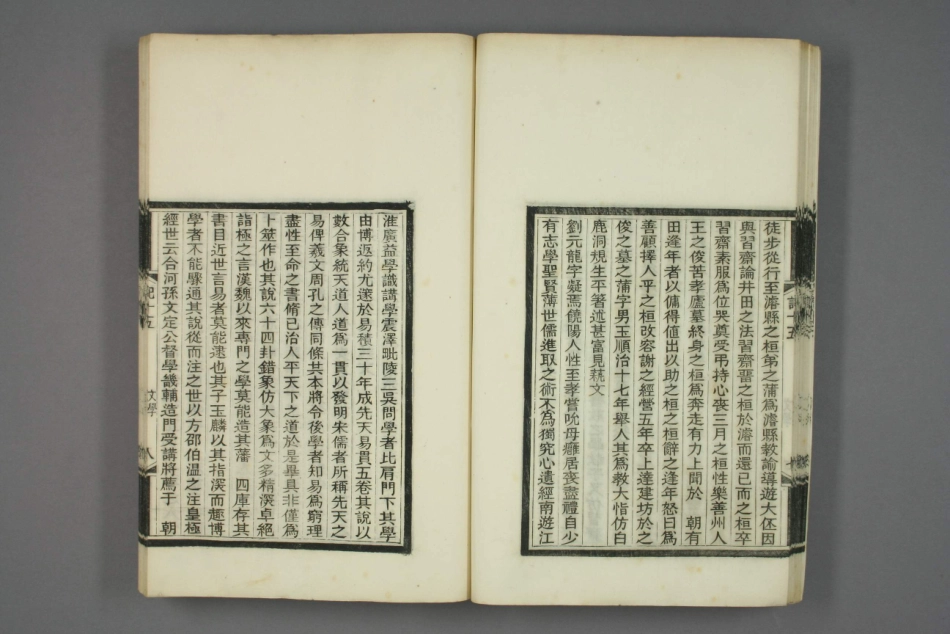 徒步從行至濬縣之桓弟之蒲爲濬縣教諭導遊大伾因
與習齋論井田之法習齋臀之桓於濬而還已而之桓卒
習齋素服爲位哭奠受弔持心喪三月之桓性樂善州人
王之俊苦孝廬墓終身之桓爲奔走有力上聞於　朝有
田逢年者以傭得値出以助之桓之桓辭之逢年怒曰爲
善顧擇人乎之桓改容謝之經營五年卒上達建坊於之
俊之墓之蒲字男玉順治十七年舉人其爲教大恉仿白
鹿洞規生平箸述甚富見蓺文
劉元龍字凝焉饒陽人性至孝嘗吮母癰居喪盡禮自少
有志學聖賢薄世儒進取之術不爲獨究心遺經南遊江
淮廣益學識講學震澤毗陵三吳問學者比肩門下其學
由博返約尤邃於易積三十年成先天易貫五卷其說以
數合象統天道人道爲一貫以發明朱儒者所稱先天之
易俾羲文周孔之傳同條其本將令後學者知易爲窮理
盡性至命之書脩已治人平天下之道於是畢具非僅爲
卜筮作也其說六十四卦錯象仿大象爲文多精深卓絕
詣極之言漢魏以來專門之學莫能造其藩　四庫存其
書目近世言易者莫能逮也其子玉麟以其指深而趣博
學者不能驟通其說從而注之世以方邵伯溫之注皇極
經世云合河孫文定公督學畿輔造門受講將薦于　朝
記十五
文學
八